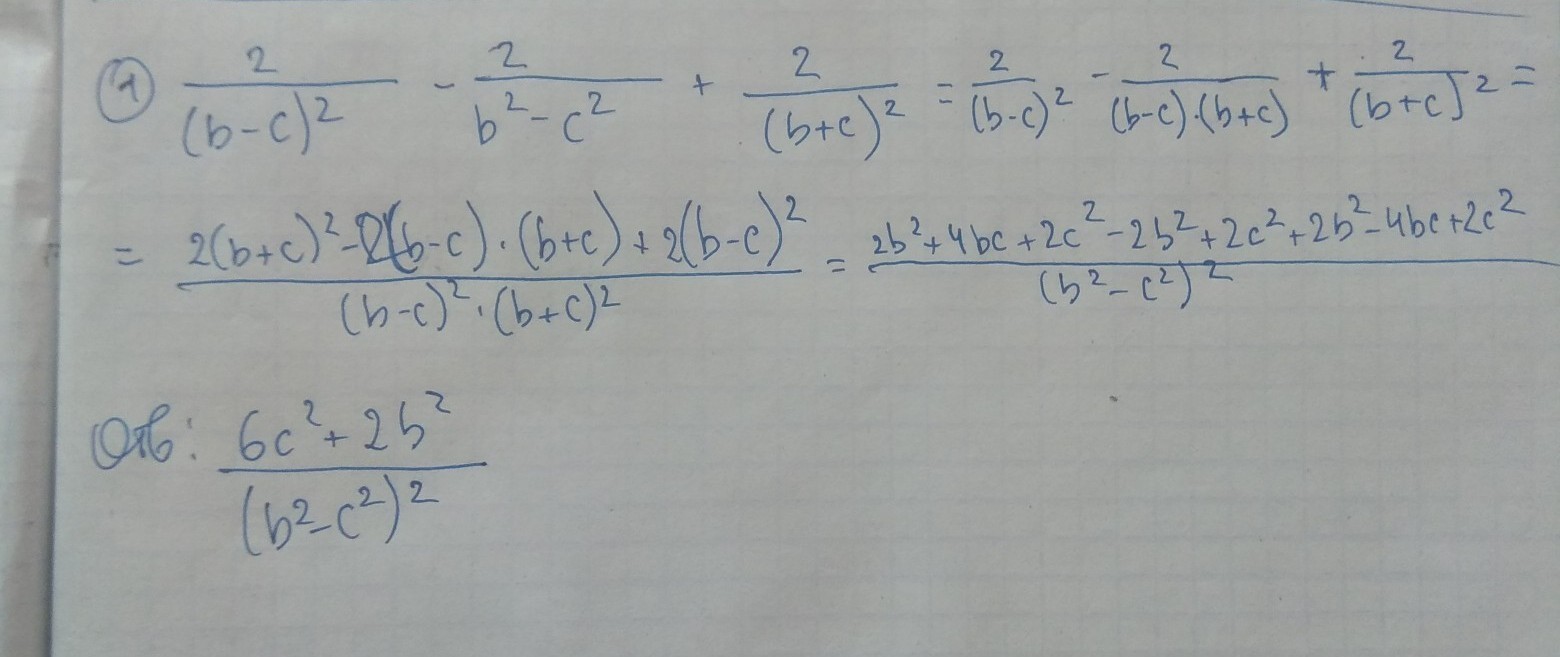 ① 2/(b-c)² - 2/(b²-c²) + 2/(b+c)² = 2/(b-c)² - 2/((b-c)·(b+c)) + 2/(b+c)² =
= (2(b+c)²-2(b-c)·(b+c)+2(b-c)²)/((b-c)²·(b+c)²) = (2b²+4bc+2c²-2b²+2c²+2b²-4bc+2c²)/(b²-c²)²
Отв: (6c²+2b²)/(b²-c²)²